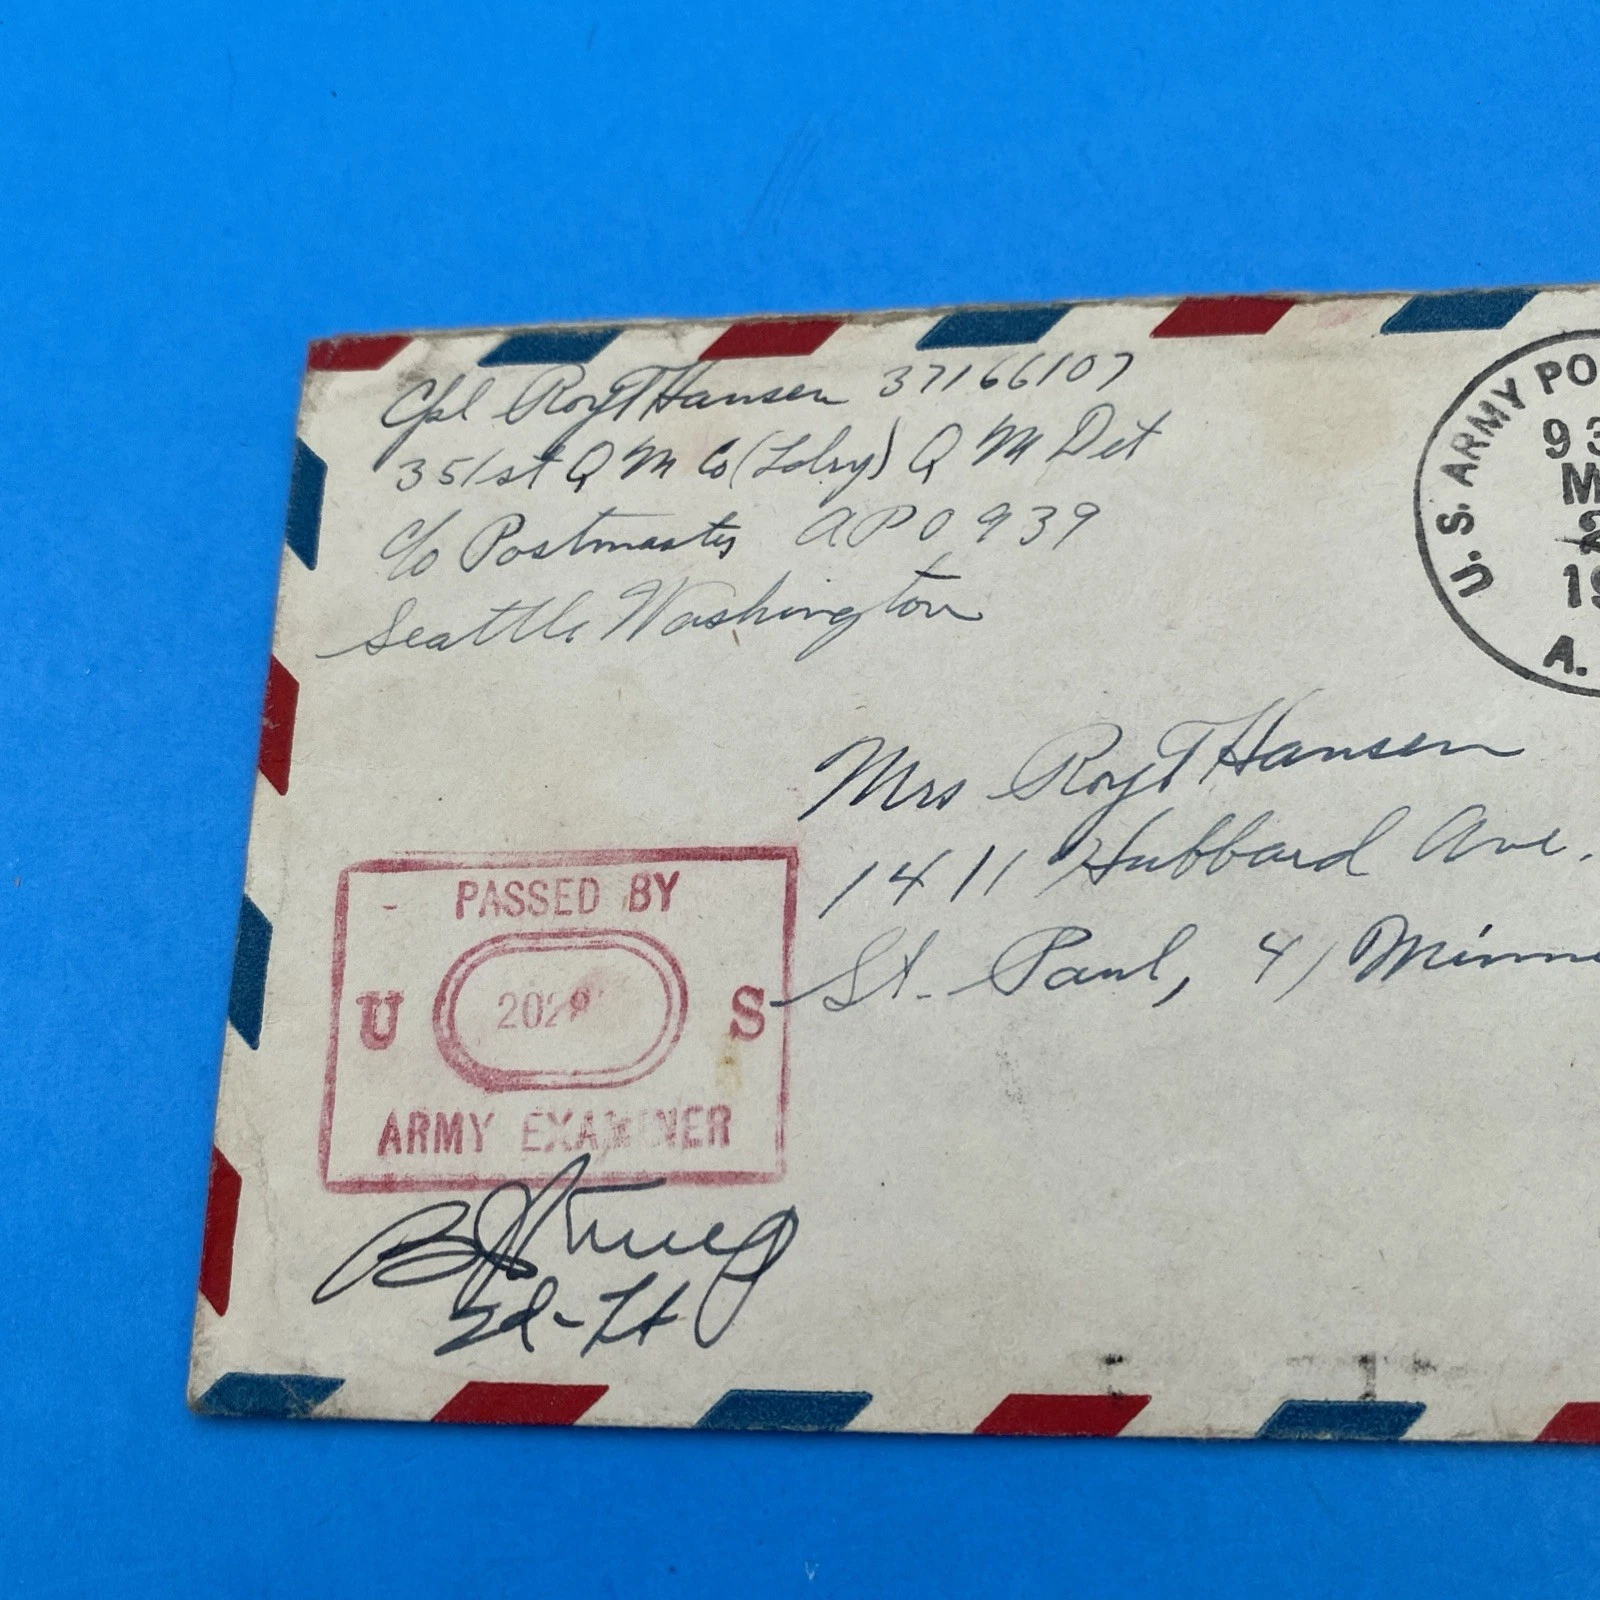 Cpl Roy T Hansen 37166107
351st Q M Co (Ldry) Q M Det
c/o Postmaster APO 939
Seattle Washington
U.S. ARMY PO
93
M
2
19
A.
Mrs Roy T Hansen
1411 Hubbard Ave.
St. Paul, 4, Minne
PASSED BY
U S
ARMY EXAMINER
2d-Lt